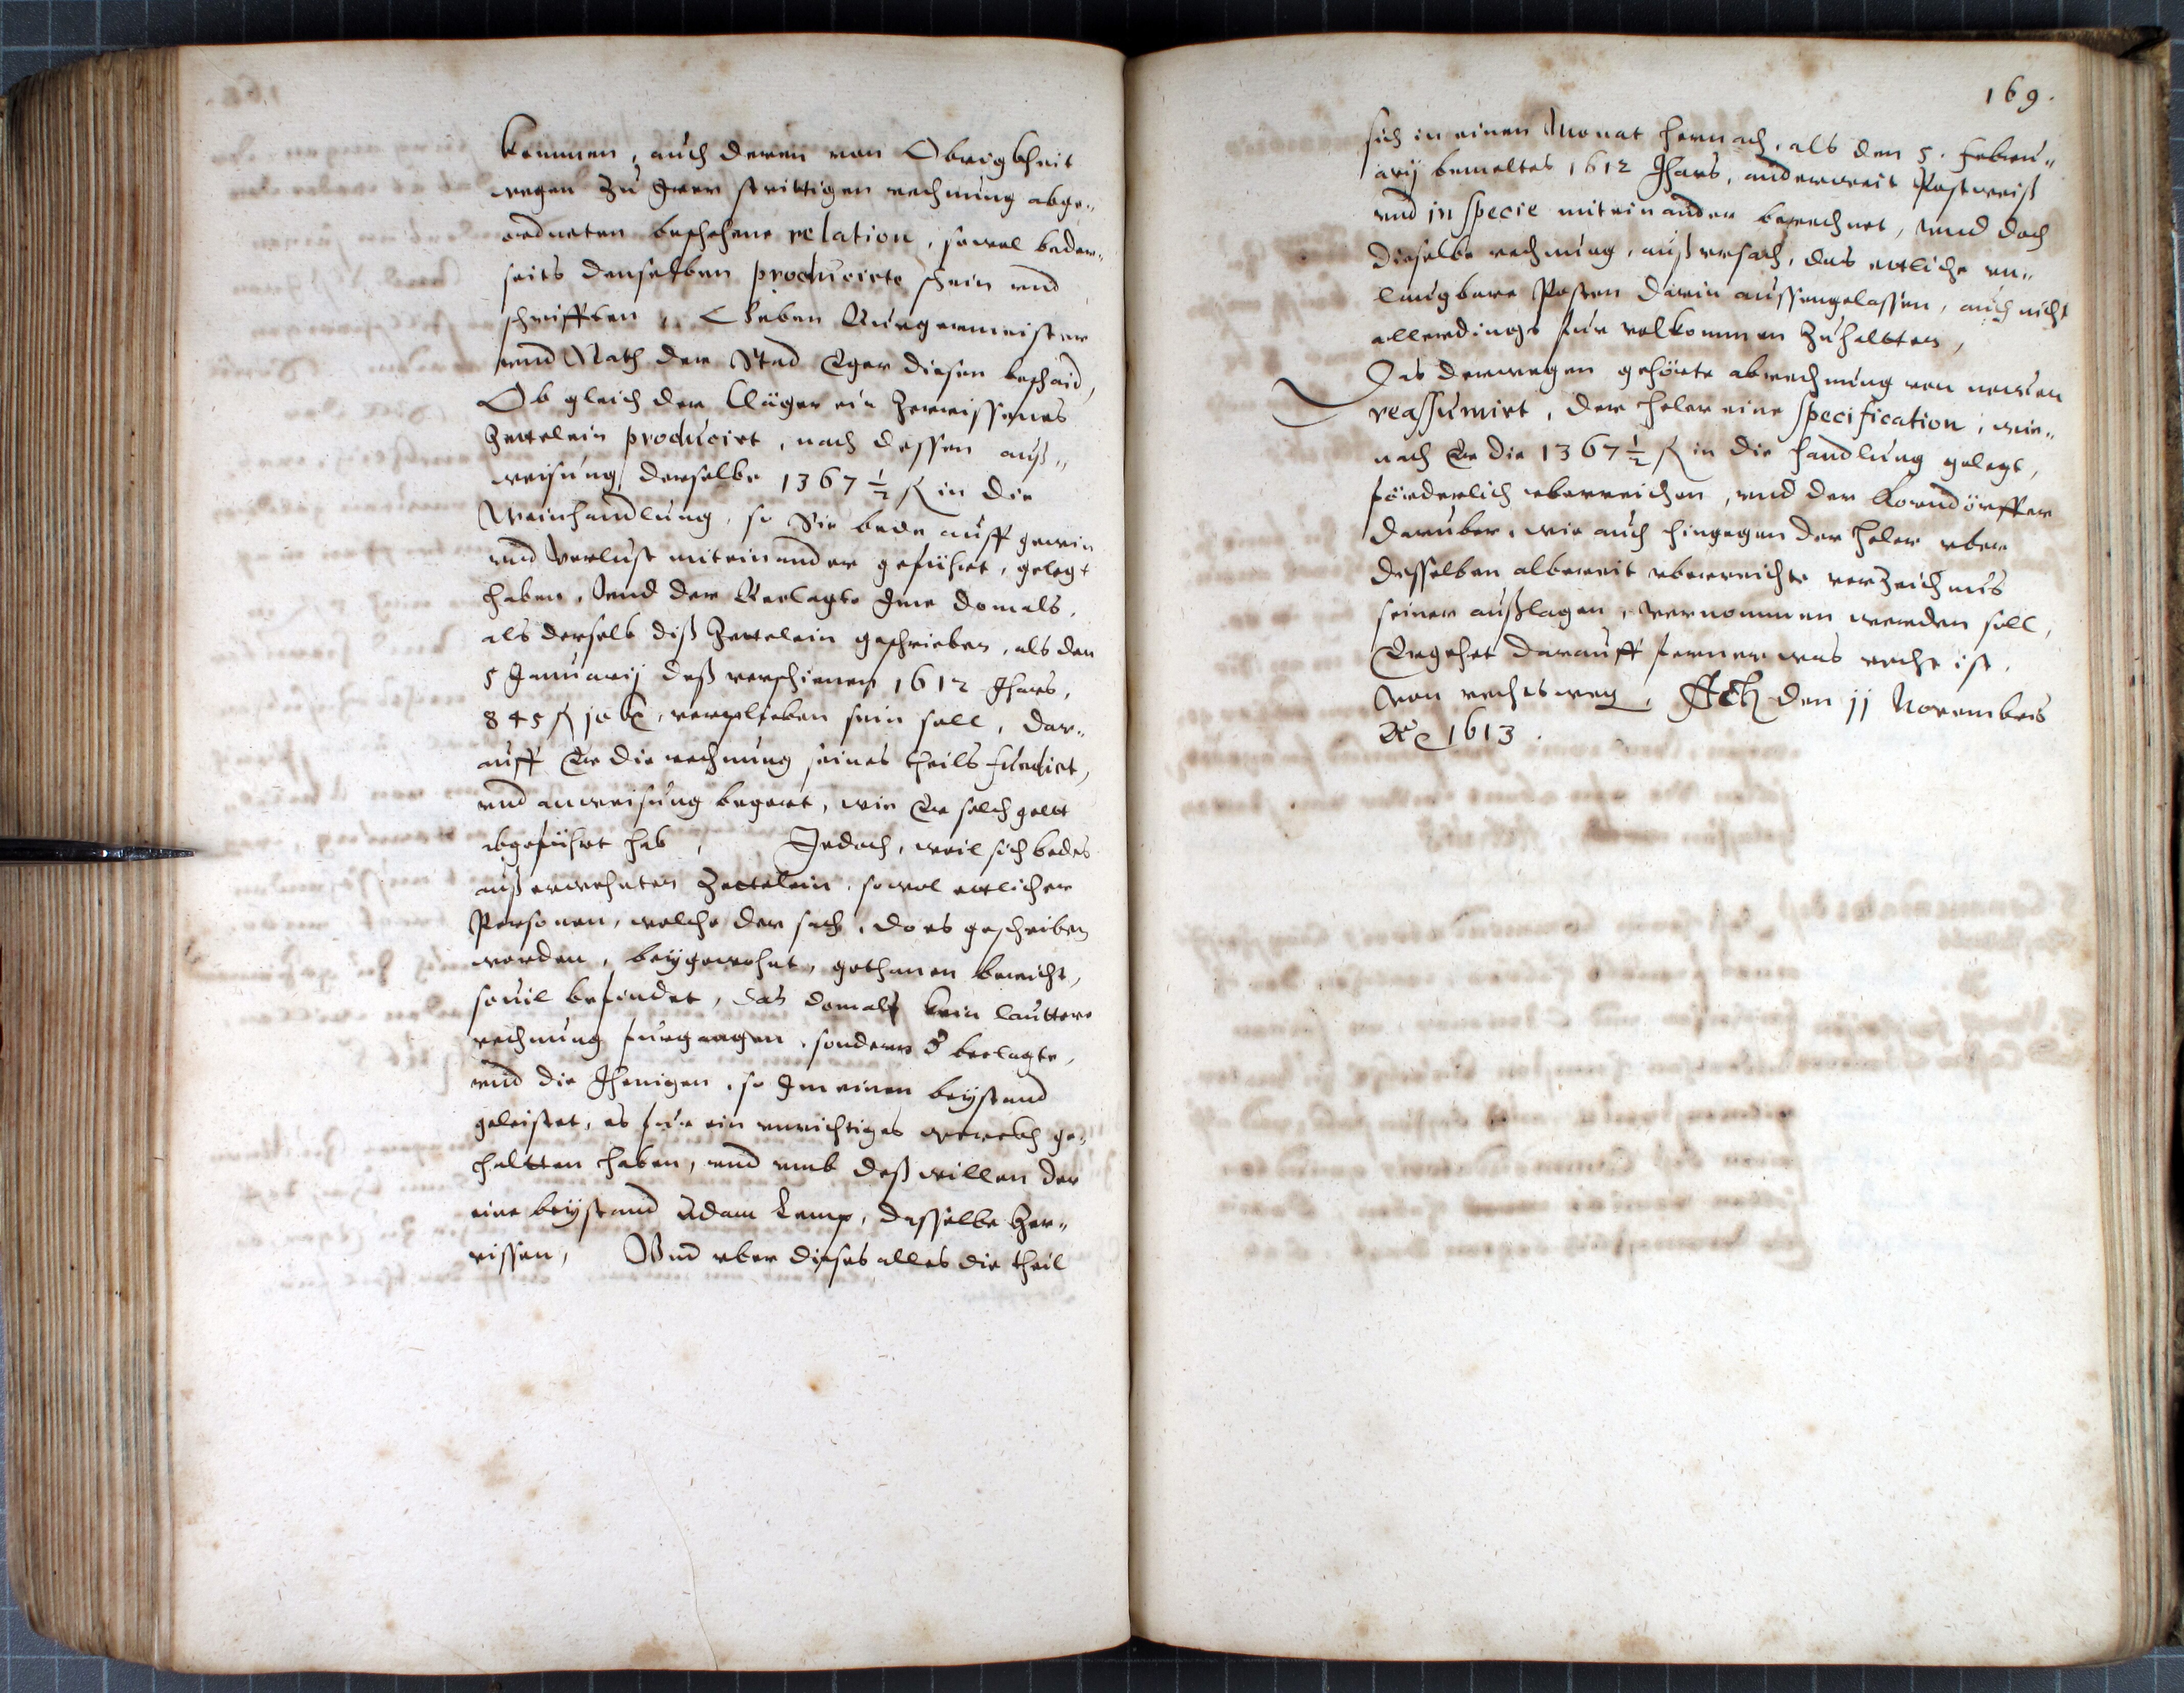 kommen, auch deren von Obrigkheit
wegen zu Irer strittigen rechnung abge„
ordneten beschehene relation, sowol beder„
seits denselben producirte schein vnd
schrifften, Geben Burgermeister
vnd Rath der Stad Eger diesen beschaid,
Ob gleich der Cläger ein zerrissenes
Zettelein producirt, nach dessen auß„
weisung derselbe 1367 ½ fl in die
Weinhandlung, so Sie bede auff gewin
vnd verlust miteinander geführt, gelegt
haben, Vnd der Beclagte Ime domals,
als derselb diß Zettelein geschrieben, als den
5 Januarij deß verschienen 1612 Jhars,
845 fl 10 kr, verplieben sein soll, dar„
auff Er die rechnung seines theils fundirt,
vnd anweisung begert, wie Er solch gelt
abgeführt hab, Jedoch, weil sich bedes
auß erwehnten Zettelein, sowol etlicher
Personen, welche der sach, do es geschrieben
worden, beygewohnt, gethanen bericht,
souil befindet, das domals kein lauttere
rechnung furgangen, sondern d beclagte,
vnd die Jhenigen, so Im einen beystand
geleistet, es fur ein vnrichtiges werckh ge„
haltten haben, vnd vmb deß willen der
eine beystand Adam Lemp, dasselbe zer„
rissen, Vnd vber dieses alles die theil
169.
sich in einen Monat hernach, als den 5. Febru„
arij bemeltes 1612 Jhars, anderweit Postweiß
vnd in specie miteinander berechnet, vnd doch
dieselbe rechnung, auß vrsach, das etliche vn„
laugbare Posten darin aussengelassen, auch nicht
allerdings fur volkommen zuhaltten,
Das derwegen gehörte abrechnung von neuen
reassumirt, der Heler eine specification, wie„
nach Er die 1367 ½ fl in die handlung gelegt,
förderlich vberreichen, vnd der Korndörffer
daruber, wie auch hingegen der Heler vber
desselben albereit vberreichte verzeichnus
seiner außlagen, vernommen werden soll,
Ergehet darauff ferner was recht ist.
Von rechtsweg. Act den 11 Novembris
Ao 1613.